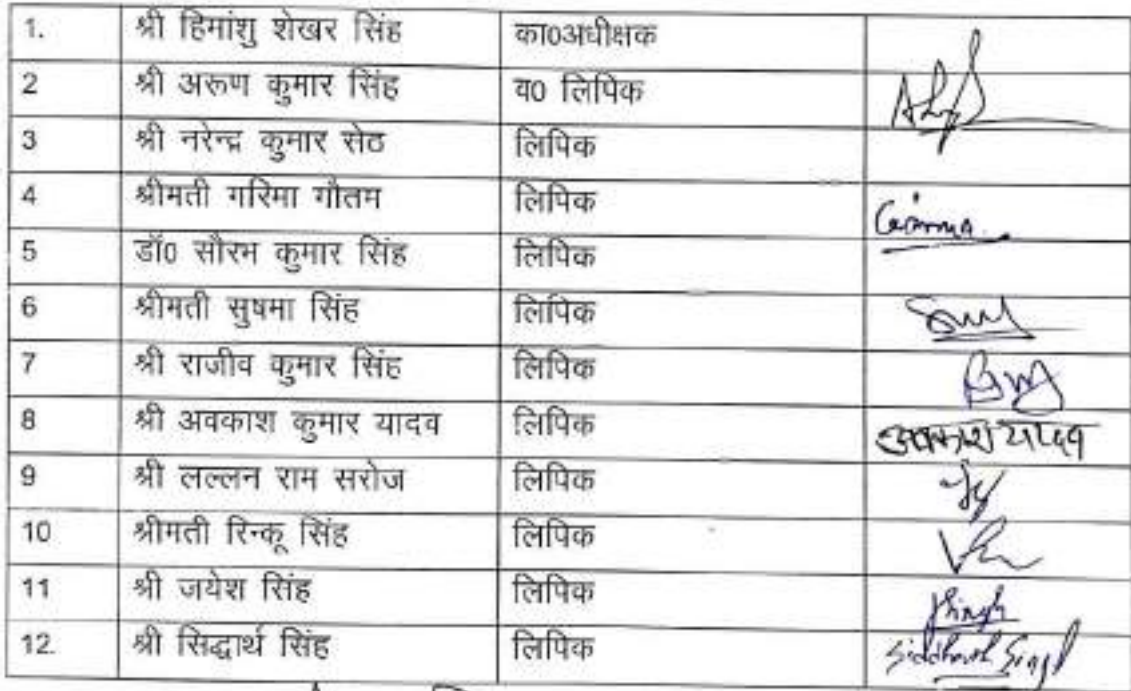 1. श्री हिमांशु शेखर सिंह का0अधीक्षक
2 श्री अरूण कुमार सिंह व0 लिपिक
3 श्री नरेन्द्र कुमार सेठ लिपिक
4 श्रीमती गरिमा गौतम लिपिक Garima
5 डॉ0 सौरभ कुमार सिंह लिपिक
6 श्रीमती सुषमा सिंह लिपिक
7 श्री राजीव कुमार सिंह लिपिक
8 श्री अवकाश कुमार यादव लिपिक अवकाश यादव
9 श्री लल्लन राम सरोज लिपिक
10 श्रीमती रिन्कू सिंह लिपिक
11 श्री जयेश सिंह लिपिक JSingh
12. श्री सिद्धार्थ सिंह लिपिक Siddharth Singh